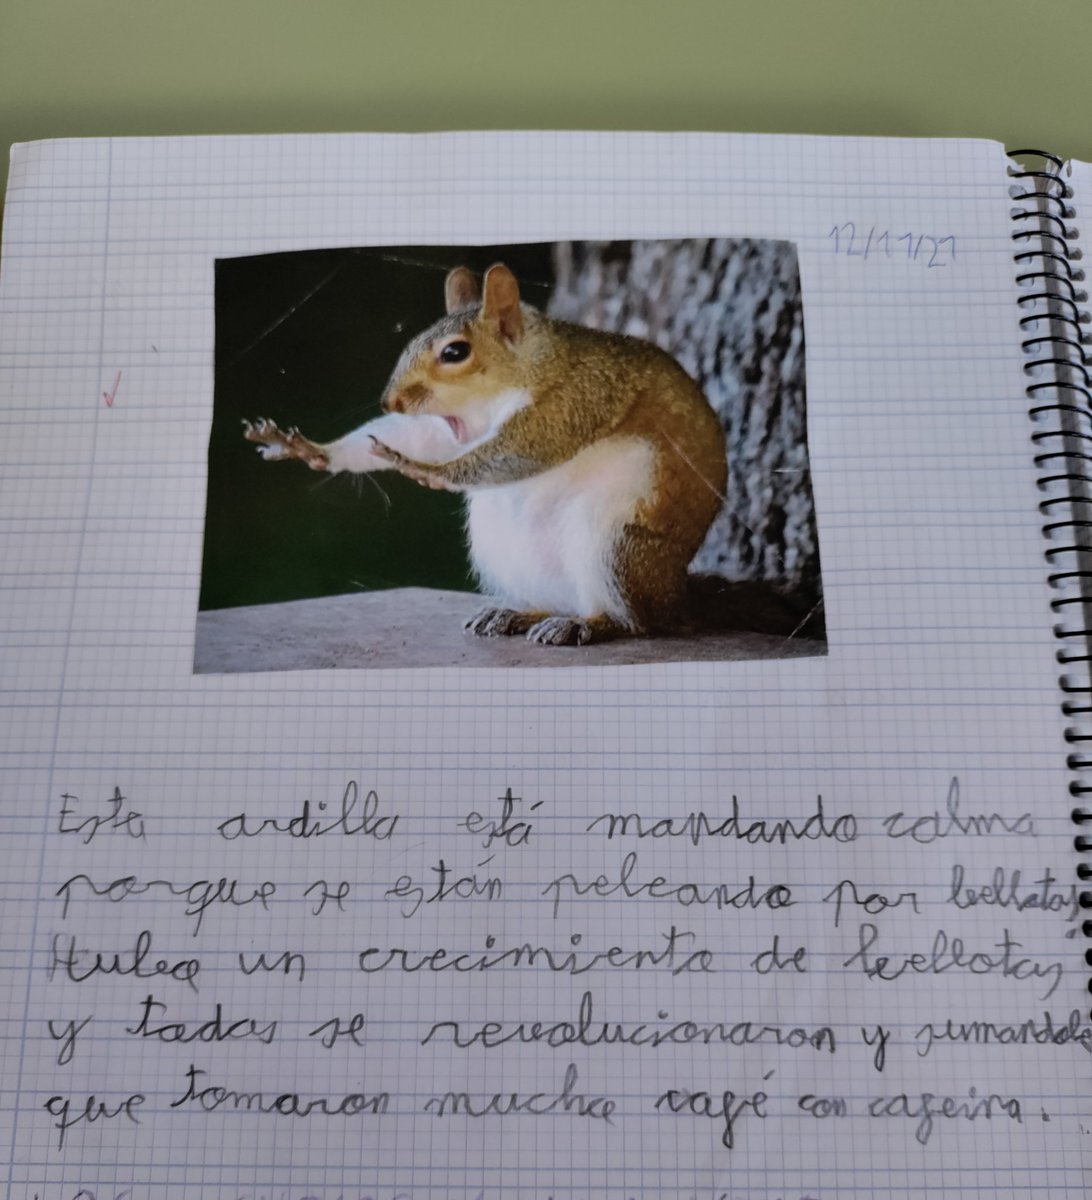 12/11/21
Esta ardilla está mandando calma
porque se están peleando por bellotas
Hubo un crecimiento de bellotas
y todas se revolucionaron y sumandole
que tomaron mucho café con cafeina.